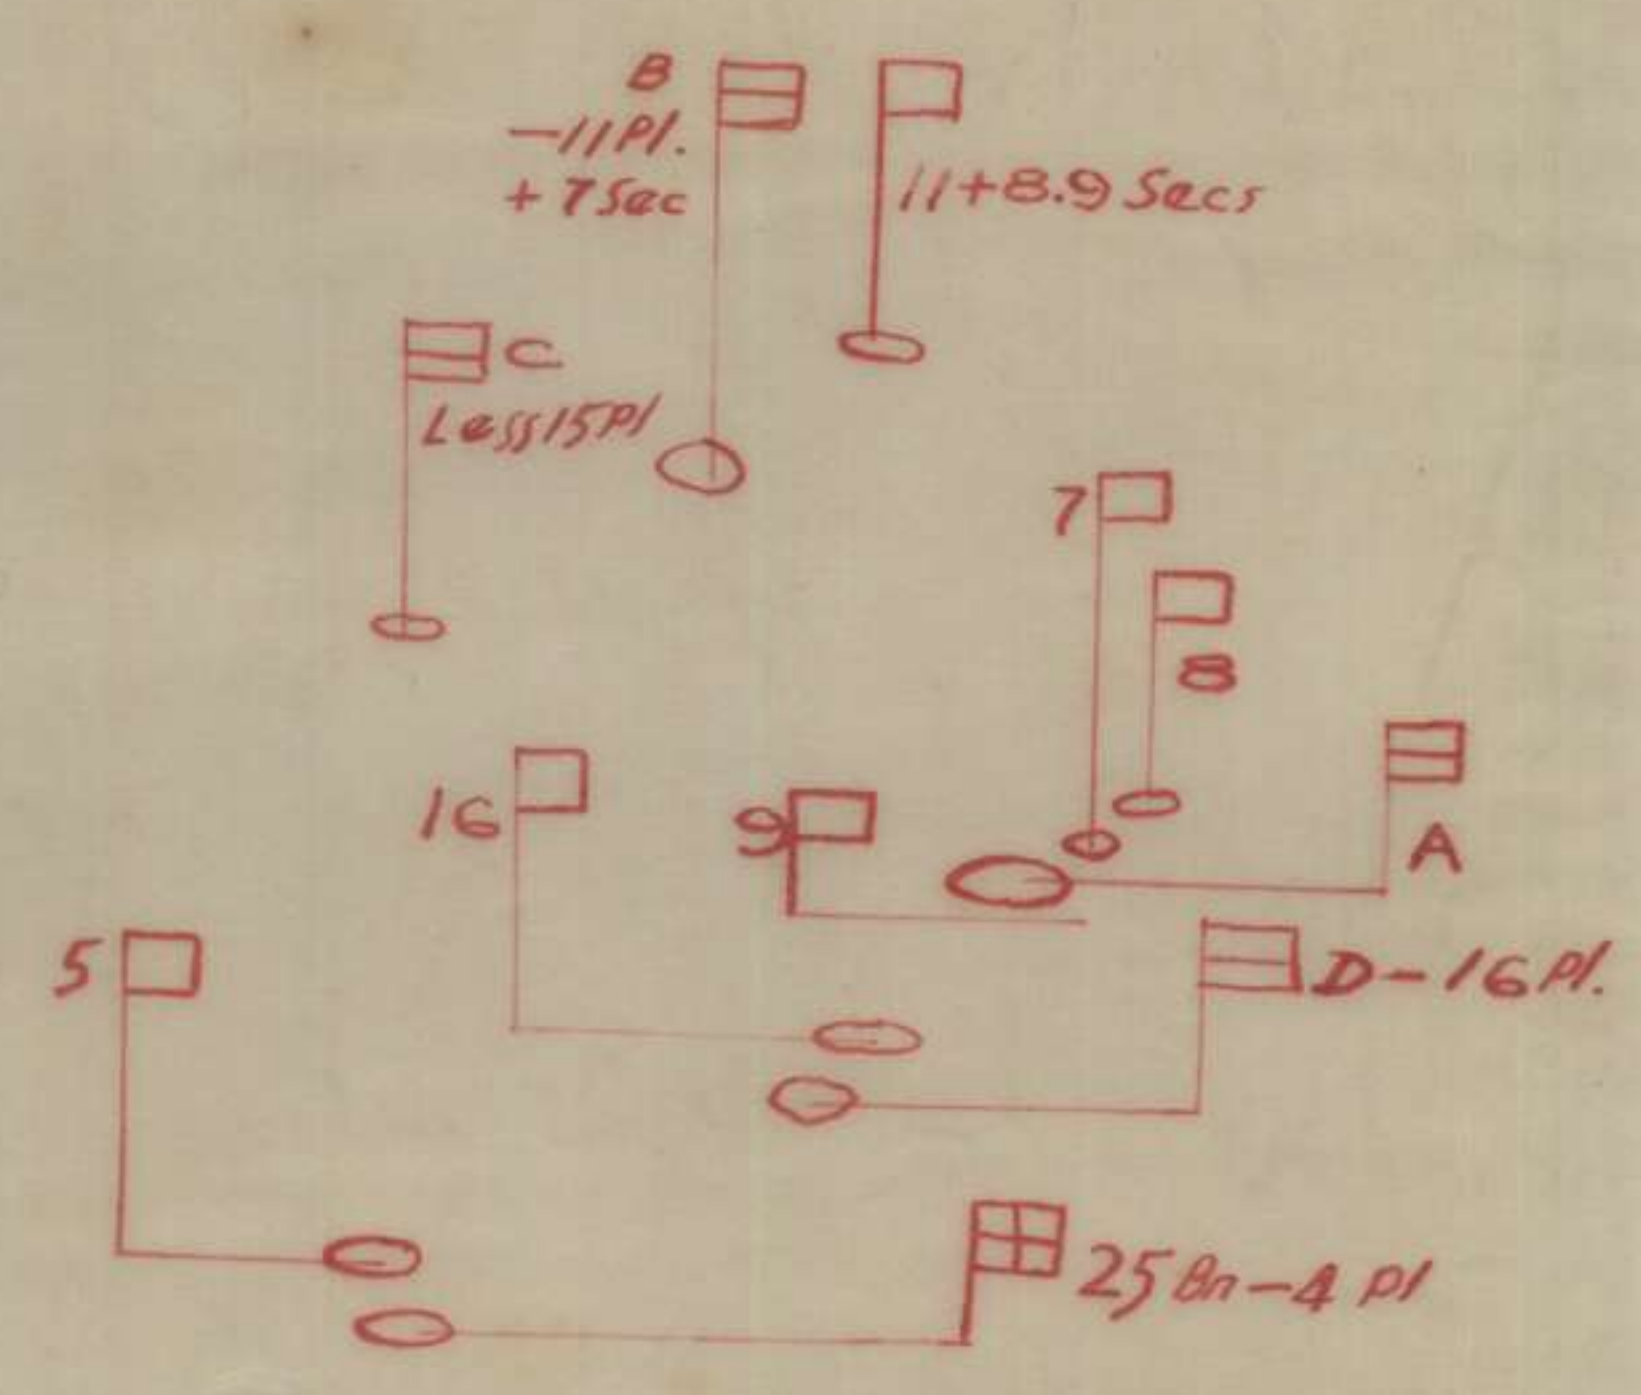 B
-11Pl.
+ 7 Sec
11+8.9 Secs
C
Less 15Pl
7
8
A
16
9
5
D-16Pl.
25 Bn-4 Pl